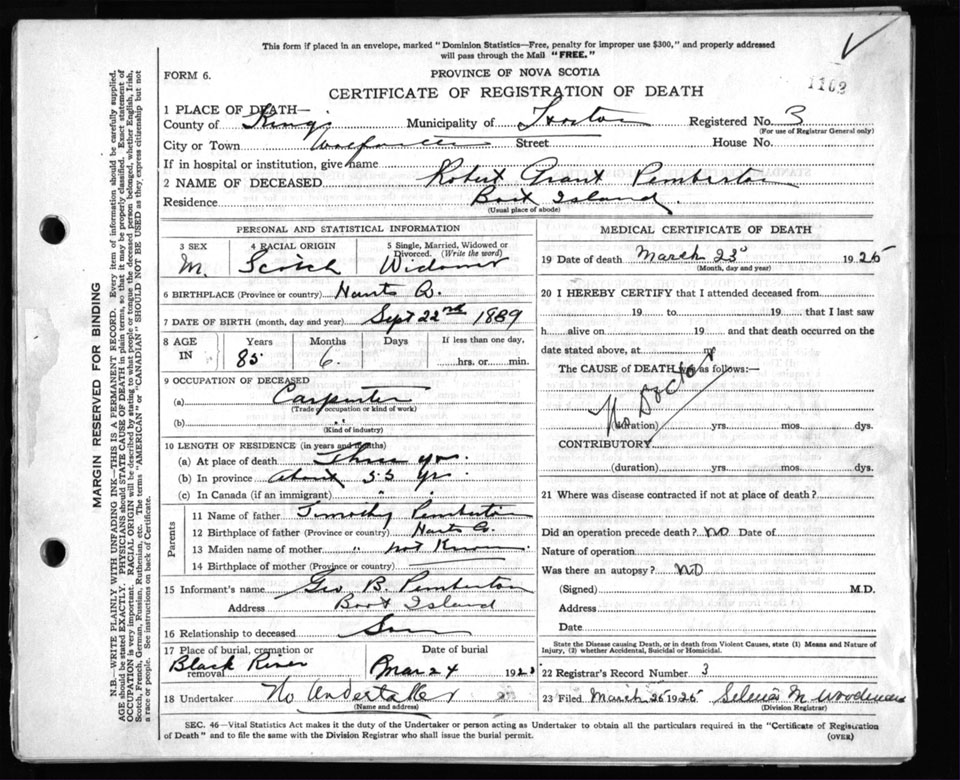 This form if placed in an envelope, marked "Dominion Statistics—Free, penalty for improper use $300," and properly addressed
will pass through the Mail "FREE."
FORM 6.
PROVINCE OF NOVA SCOTIA
1162
CERTIFICATE OF REGISTRATION OF DEATH
1 PLACE OF DEATH—
County of Kings Municipality of Horton Registered No. 3
(For use of Registrar General only)
City or Town Street House No.
If in hospital or institution, give name
2 NAME OF DECEASED Robert Grant Pemberton
Residence Boot Island.
(Usual place of abode)
PERSONAL AND STATISTICAL INFORMATION
3 SEX 4 RACIAL ORIGIN 5 Single, Married, Widowed or Divorced. (Write the word)
M. Scotch Widower
6 BIRTHPLACE (Province or country) Hants Co.
7 DATE OF BIRTH (month, day and year) Sept 22nd 1839
8 AGE IN Years Months Days If less than one day,
85 6 hrs. or min.
9 OCCUPATION OF DECEASED
(a) Carpenter
(Trade of occupation or kind of work)
(b)
(Kind of industry)
10 LENGTH OF RESIDENCE (in years and months)
(a) At place of death Three yrs.
(b) In province about 55 yr
(c) In Canada (if an immigrant) " "
Parents
11 Name of father Timothy Pemberton
12 Birthplace of father (Province or country) Hants Co.
13 Maiden name of mother " not Known
14 Birthplace of mother (Province or country)
15 Informant's name Geo B. Pemberton
Address Boot Island
16 Relationship to deceased Son
17 Place of burial, cremation or removal Date of burial
Black River Mar 24 192
18 Undertaker No Undertaker
(Name and address)
MEDICAL CERTIFICATE OF DEATH
19 Date of death March 23 1925
(Month, day and year)
20 I HEREBY CERTIFY that I attended deceased from
19 to 19 that I last saw
h alive on 19 and that death occurred on
date stated above, at m
The CAUSE of DEATH was as follows:—
No Doctor
(duration) yrs. mos. dys.
CONTRIBUTORY
(duration) yrs. mos. dys.
21 Where was disease contracted if not at place of death?
Did an operation precede death? NO Date of
Nature of operation
Was there an autopsy? NO
(Signed) M.D.
Address
Date
State the Disease causing Death, or in death from Violent Causes, state (1) Means and Nature of
Injury, (2) whether Accidental, Suicidal or Homicidal.
22 Registrar's Record Number 3
23 Filed March 1925 M.
(Division Registrar)
SEC. 46—Vital Statistics Act makes it the duty of the Undertaker or person acting as Undertaker to obtain all the particulars required in the "Certificate of Registration
of Death" and to file the same with the Division Registrar who shall issue the burial permit.
(OVER)
MARGIN RESERVED FOR BINDING
N.B.—WRITE PLAINLY WITH UNFADING INK—THIS IS A PERMANENT RECORD. Every item of information should be carefully supplied.
AGE should be stated EXACTLY. PHYSICIANS should STATE CAUSE OF DEATH in plain terms, so that it may be properly classified. Exact statement of
OCCUPATION is very important. RACIAL ORIGIN will be described by stating to what people or tongue the deceased person belonged, whether English, Irish,
Scotch, French, German, Russian, Ruthenian, etc. The terms "AMERICAN" or "CANADIAN" SHOULD NOT BE USED as they express citizenship but not
a race or people. See instructions on back of Certificate.